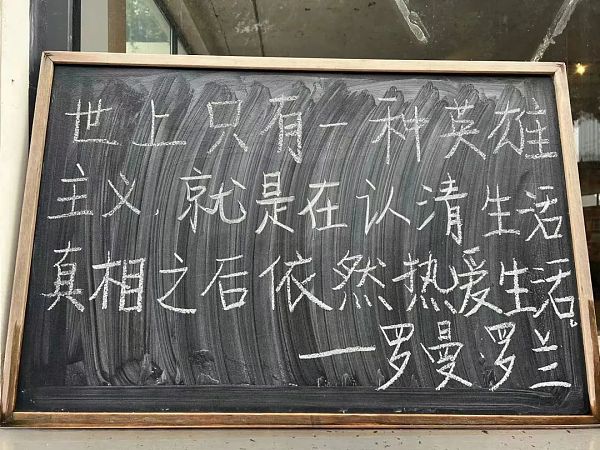 世上只有一种英雄
主义,就是在认清生活
真相之后依然热爱生活。
——罗曼罗兰